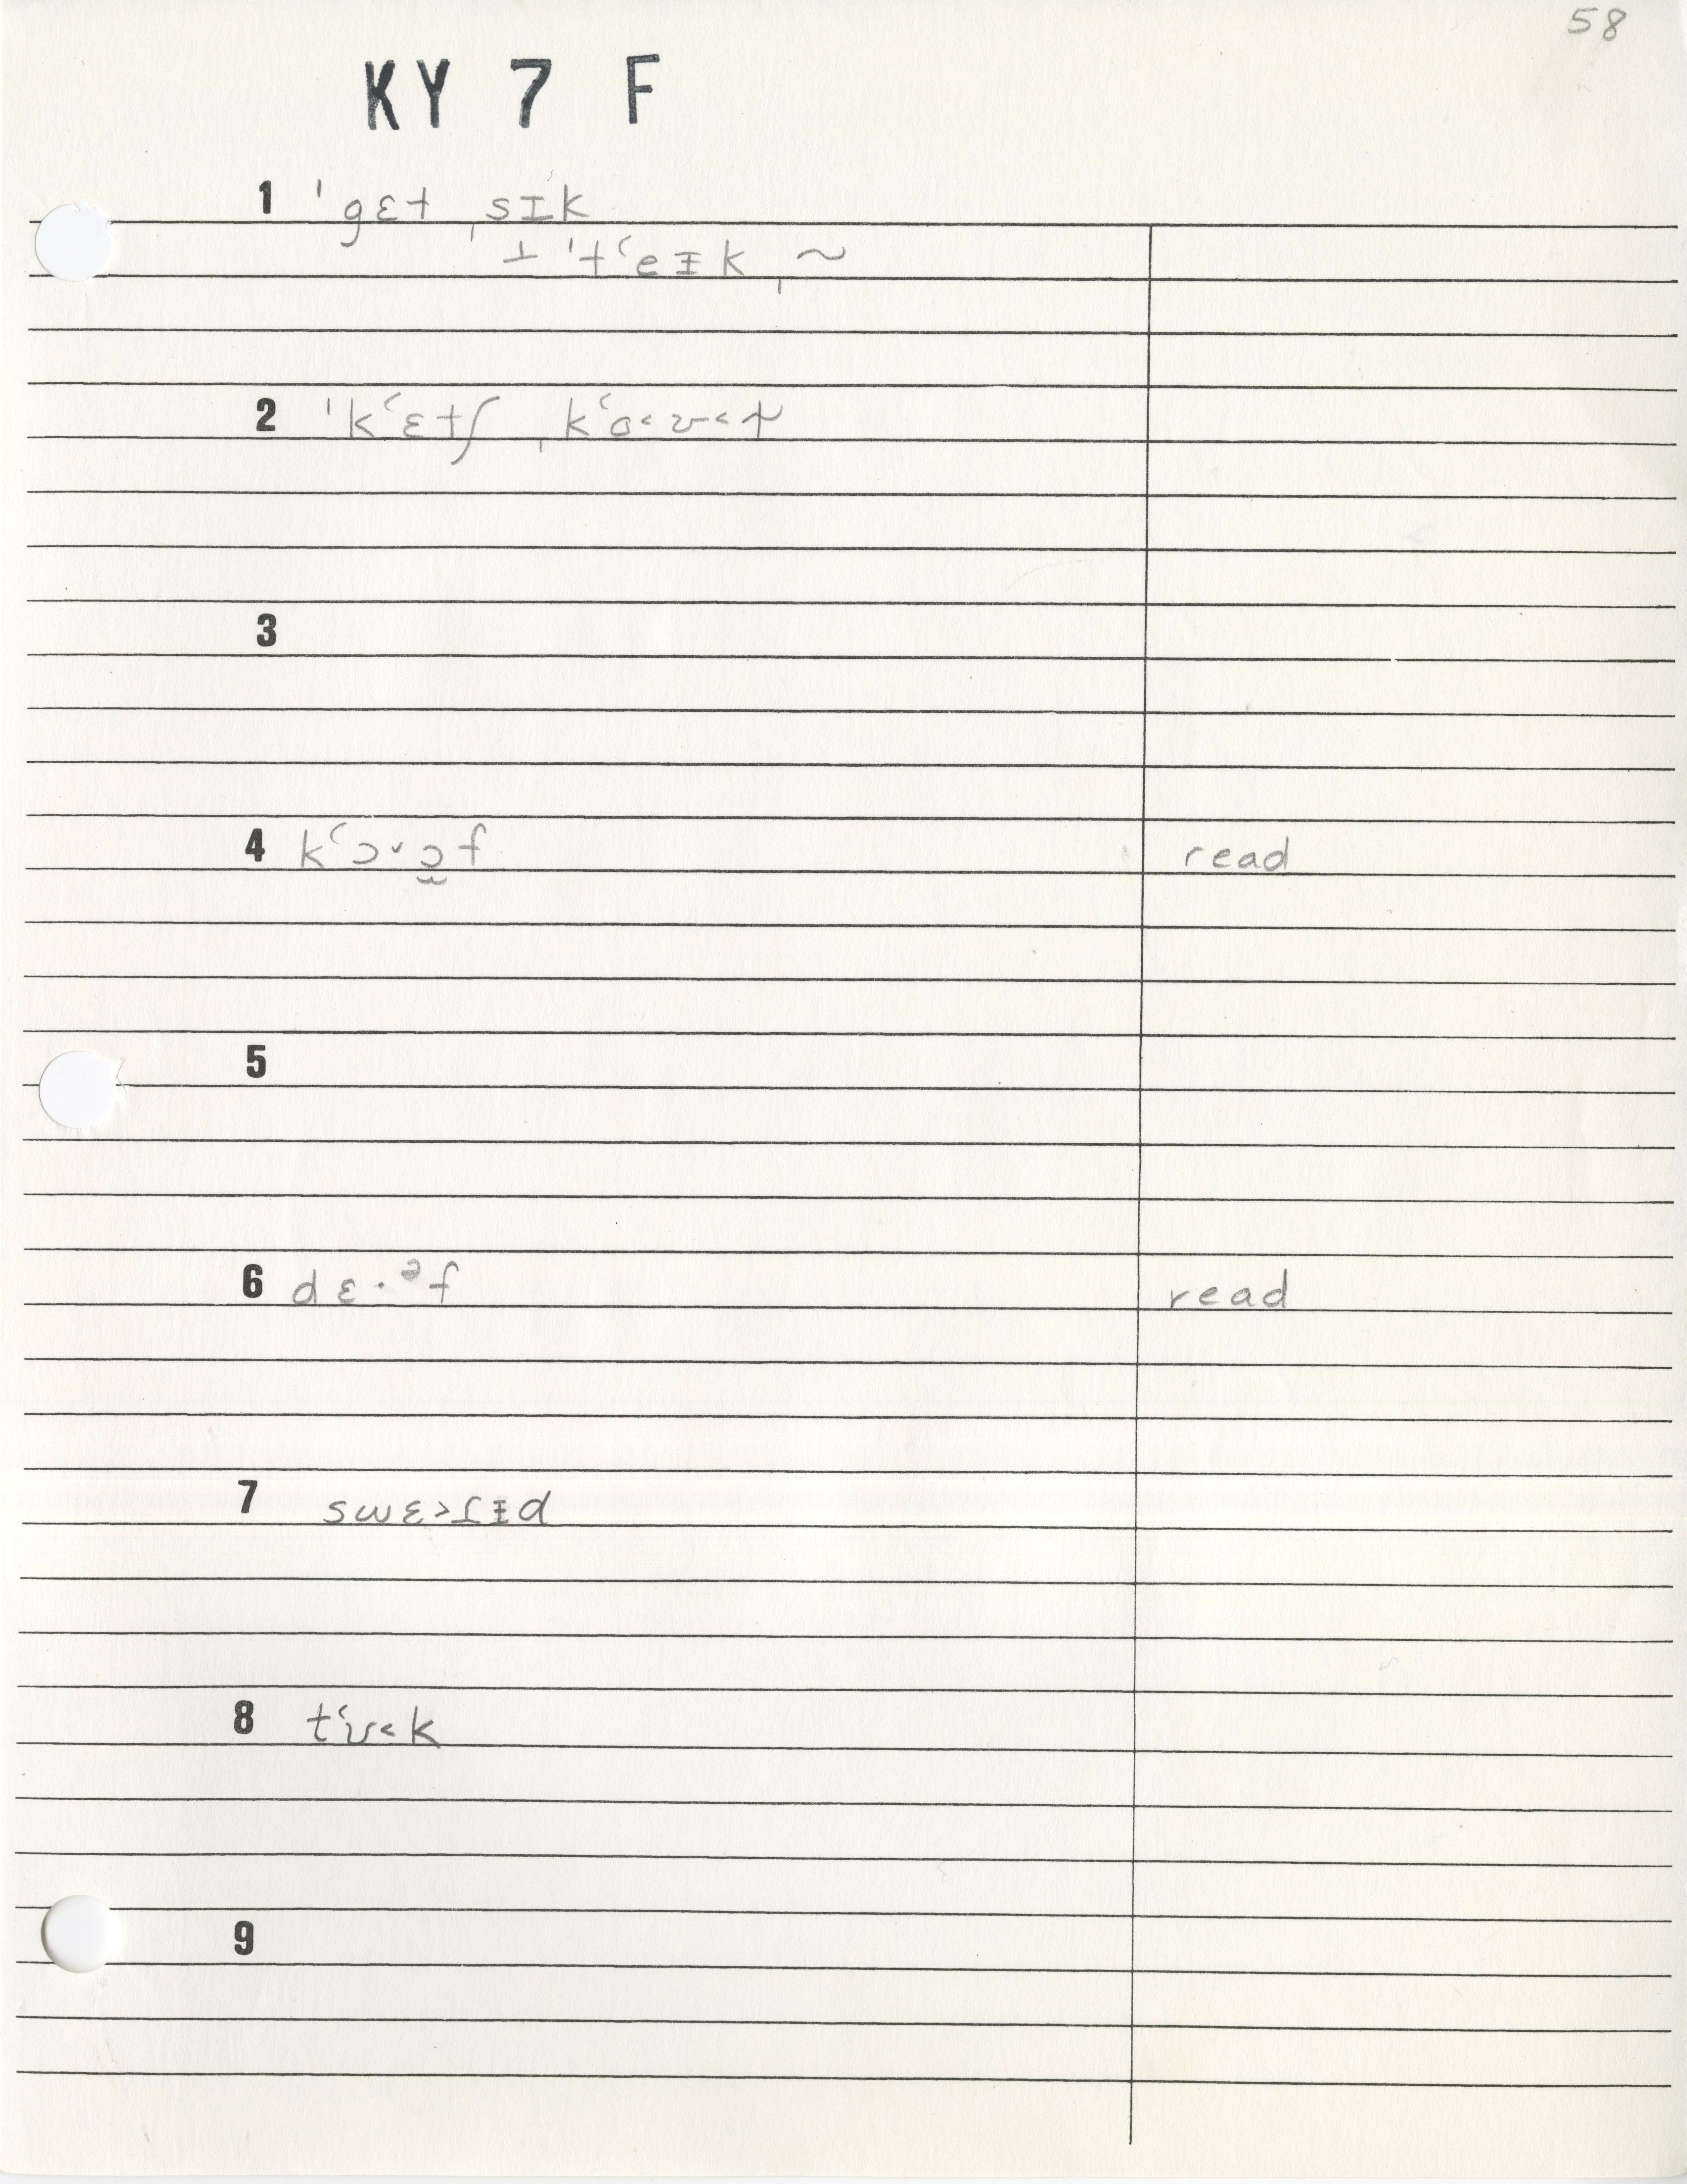 58
KY 7 F
1 ˈgɛt ˌsɪk
⊥ ˈtʻeᵻk ˌ~
2 ˈkʻɛtʃ ˌkʻo˂ʊ˂t̴
3
4 kʻɔ˅ɔ̯f read
5
6 dɛ·ᵊf read
7 swɛ˃ɾᵻd
8 tʻʊ˂k
9